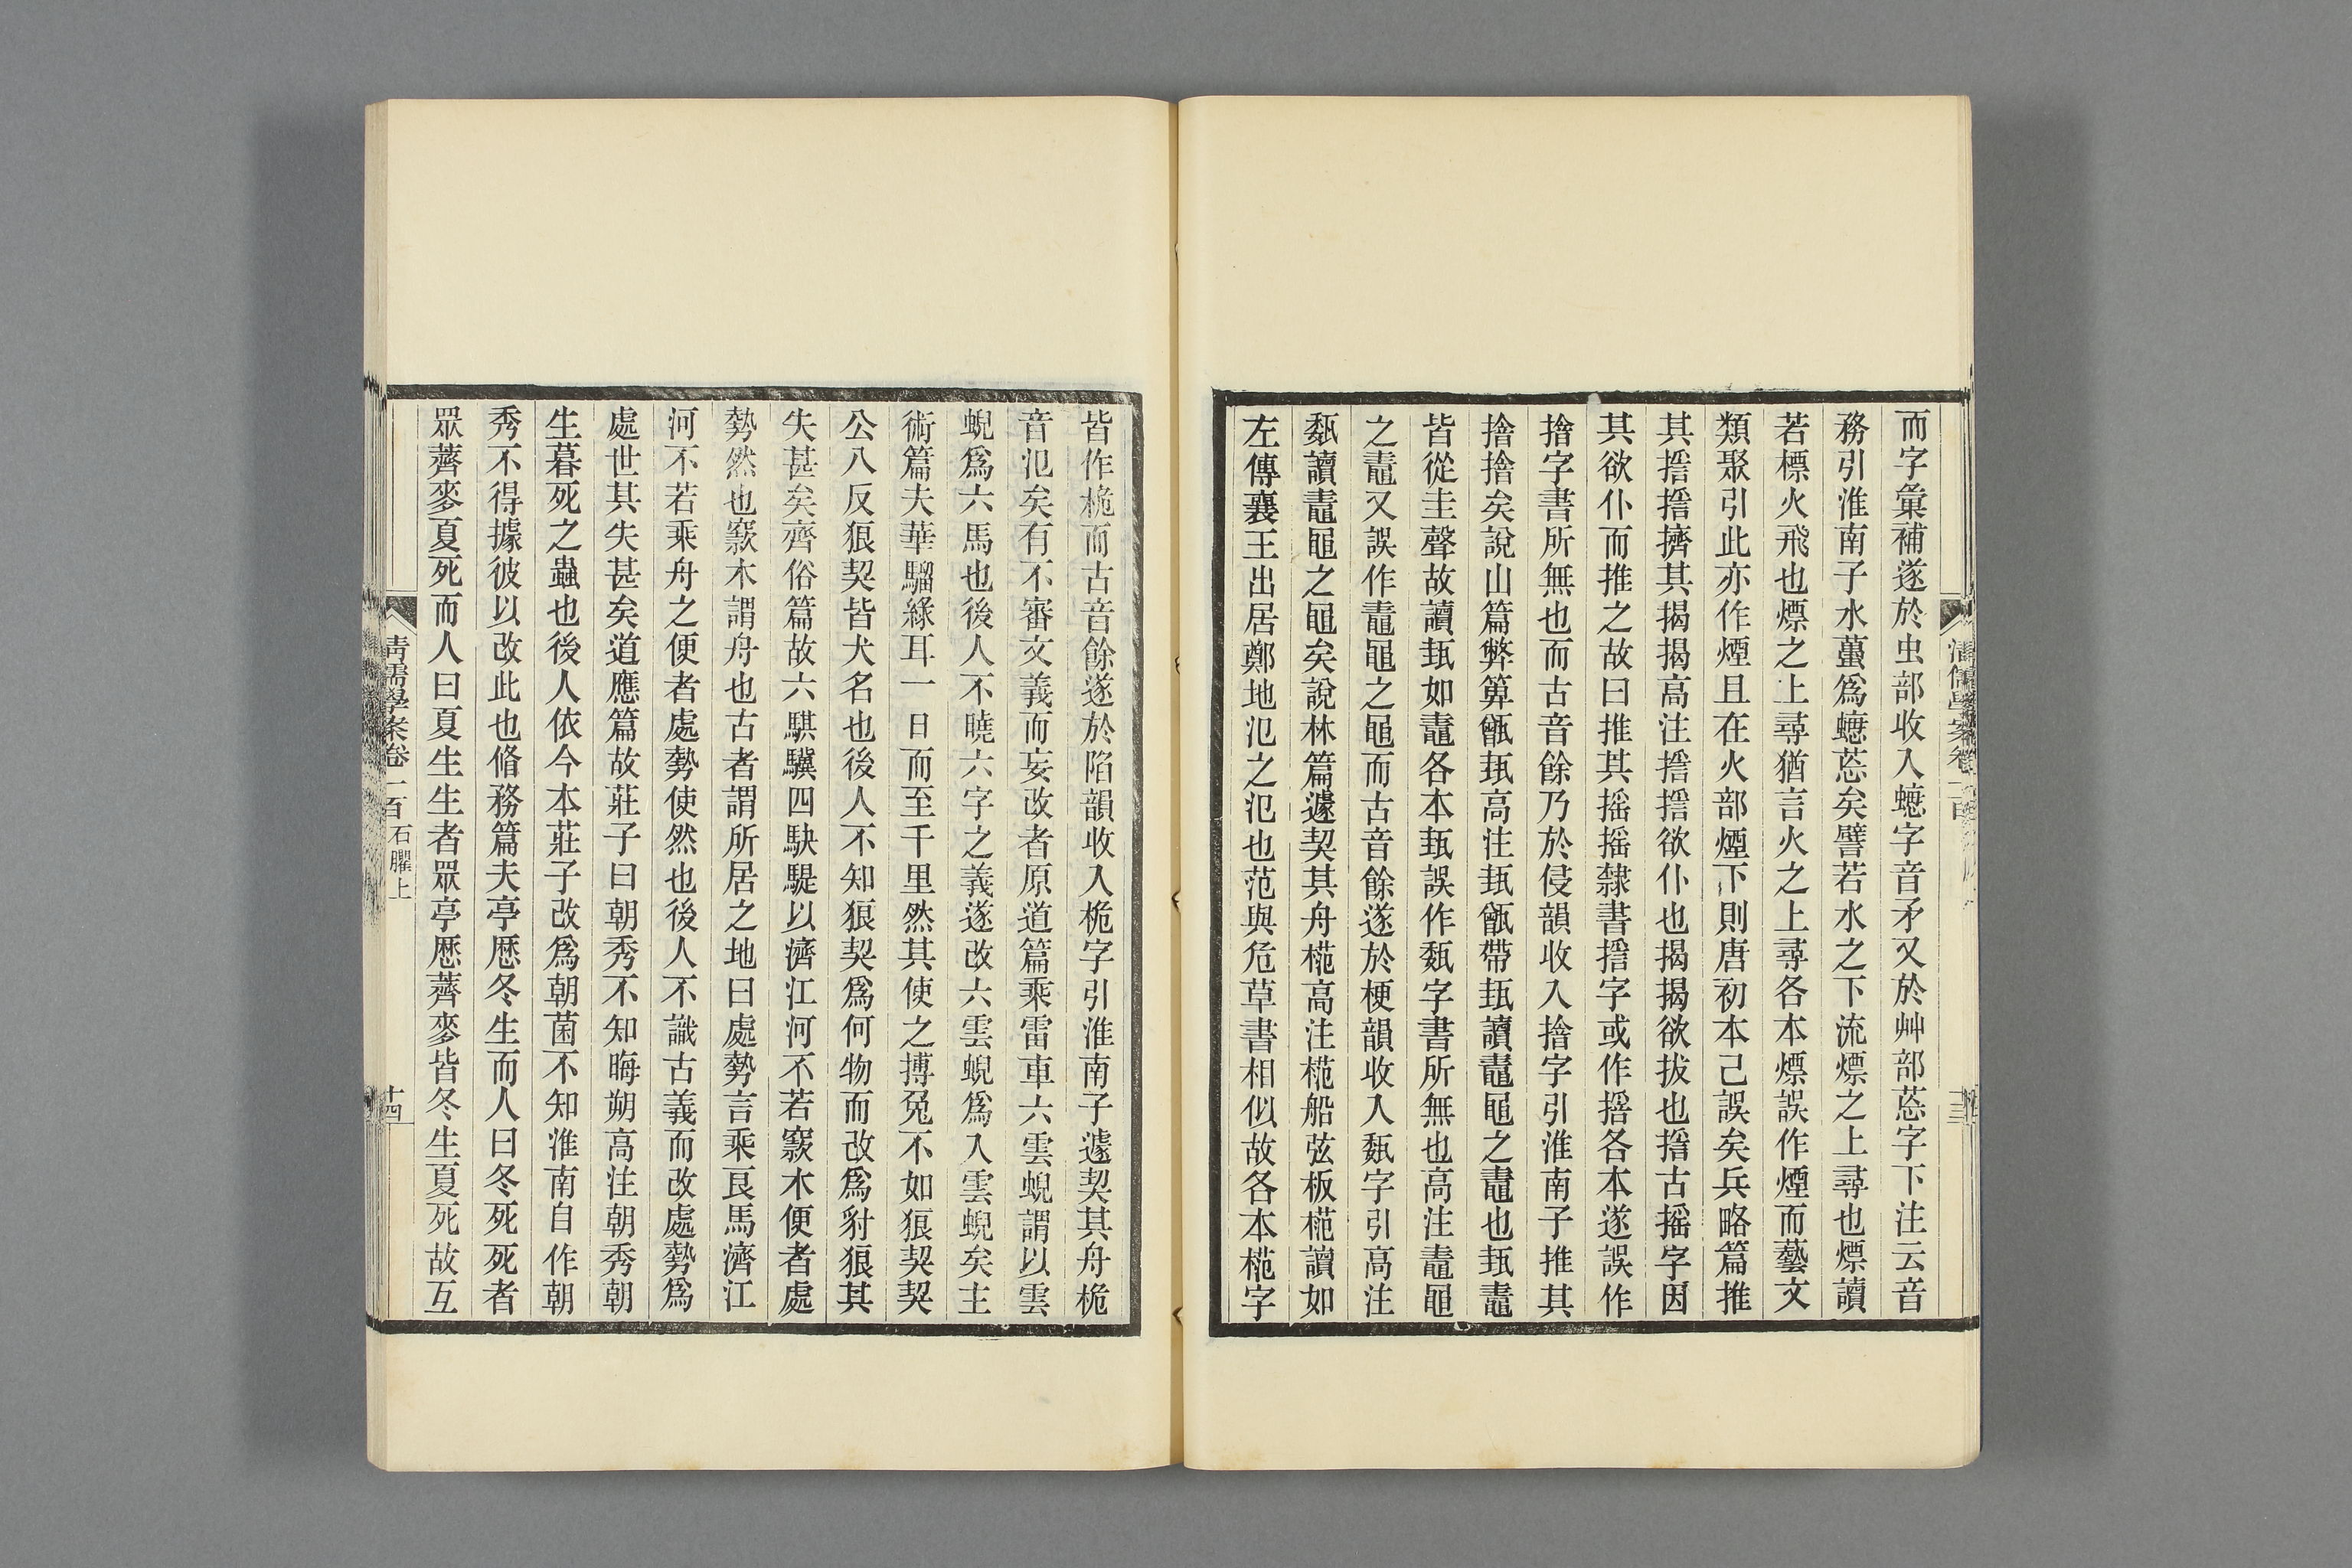 而字彙補遂於虫部收入蟌字音矛又於艸部莣字下注云音
務引淮南子水蠆爲蟌莣矣譬若水之下流熛之上尋也熛讀
若標火飛也熛之上尋猶言火之上尋各本熛誤作煙而藝文
類聚引此亦作煙且在火部煙下則唐初本已誤矣兵略篇推
其㨱㨱擠其揭揭高注㨱㨱欲仆也揭揭欲拔也㨱古搖字因
其欲仆而推之故曰推其搖搖隸書㨱字或作㨱各本遂誤作
搚字書所無也而古音餘乃於侵韻收入搚字引淮南子推其
搚搚矣說山篇弊箄甑瓾高注瓾甑帶瓾讀鼃黽之鼃也瓾鼃
皆從圭聲故讀瓾如鼃各本瓾誤作㼝字書所無也高注鼃黽
之鼃又誤作鼃黽之黽而古音餘遂於梗韻收入㼝字引高注
㼝讀鼃黽之黽矣說林篇遽契其舟㮓高注㮓船弦板㮓讀如
左傳襄王出居鄭地氾之氾也范與危草書相似故各本㮓字
皆作桅而古音餘遂於陷韻收入桅字引淮南子遽契其舟桅
音氾矣有不審文義而妄改者原道篇乘雷車六雲蜺謂以雲
蜺爲六馬也後人不曉六字之義遂改六雲蜺爲入雲蜺矣主
術篇夫華騮緣耳一日而至千里然其使之搏兔不如狼契契
公八反狼契皆犬名也後人不知狼契爲何物而改爲豺狼其
失甚矣齊俗篇故六騏驥四駃騠以濟江河不若窾木便者處
勢然也窾木謂舟也古者謂所居之地曰處勢言乘良馬濟江
河不若乘舟之便者處勢使然也後人不識古義而改處勢爲
處世其失甚矣道應篇故莊子曰朝秀不知晦朔高注朝秀朝
生暮死之蟲也後人依今本莊子改爲朝菌不知淮南自作朝
秀不得據彼以改此也脩務篇夫亭歷冬生而人曰冬死死者
眾薺麥夏死而人曰夏生生者眾亭歷薺麥皆冬生夏死故互
清儒學案卷一百 石臞上
十四